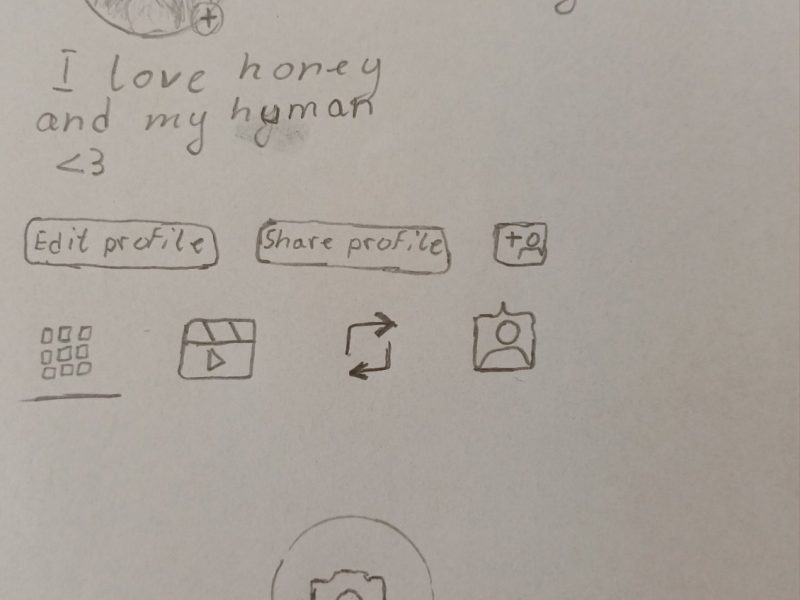 I love honey
and my hyman
<3
Edit profile
Share profile